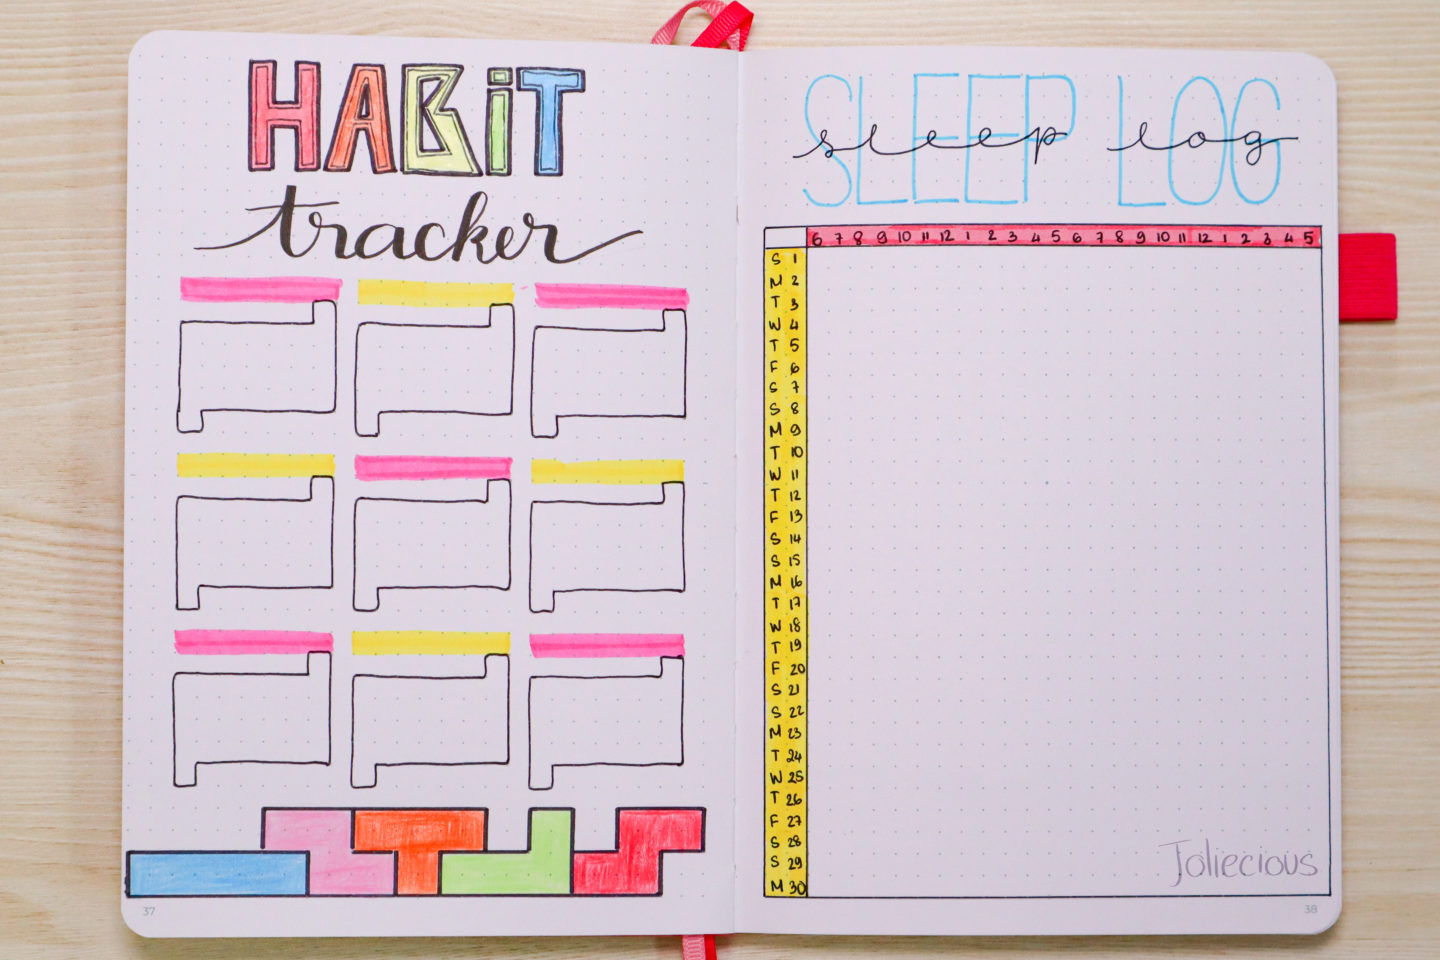 HABiT
tracker
37
SLEEP LOG
sleep log
6 7 8 9 10 11 12 1 2 3 4 5 6 7 8 9 10 11 12 1 2 3 4 5
S 1
M 2
T 3
W 4
T 5
F 6
S 7
S 8
M 9
T 10
W 11
T 12
F 13
S 14
S 15
M 16
T 17
W 18
T 19
F 20
S 21
S 22
M 23
T 24
W 25
T 26
F 27
S 28
S 29
M 30
Joliecious
38